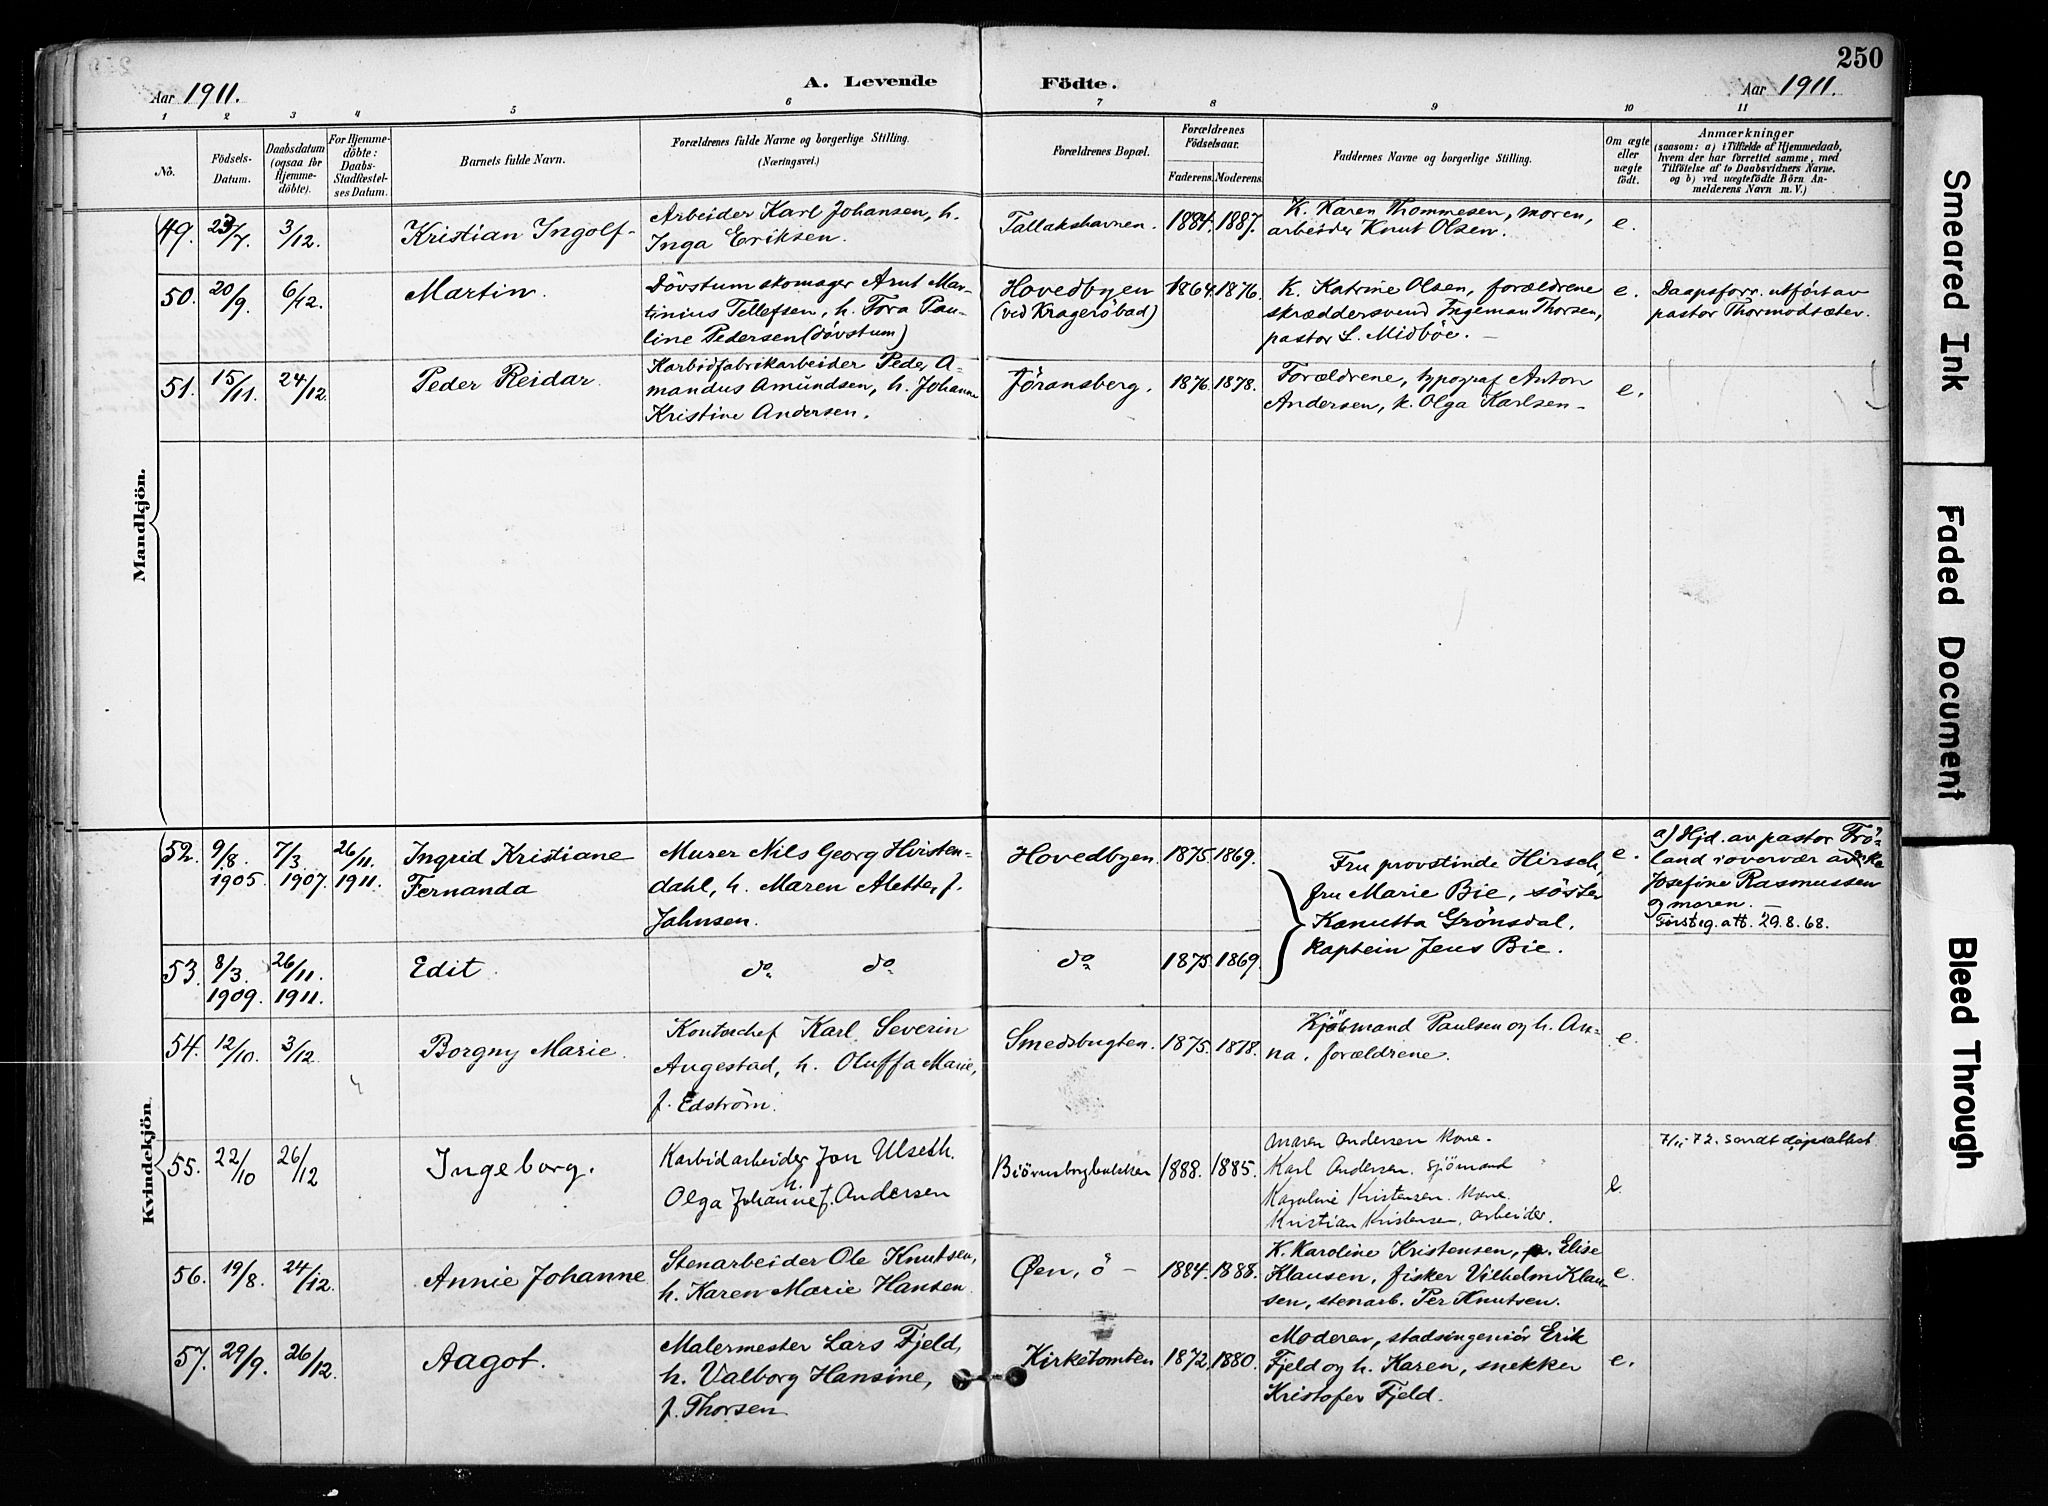 250
Aar 1911.
A. Levende
Födte.
Aar 1911.
1 2 3 4 5 6 7 8 9 10 11
No.
Födsels-
Datum.
Daabsdatum
(ogsaa for
Hjemme-
döbte).
For Hjemme-
döbte:
Daabs-
Stadfæstel-
ses Datum.
Barnets fulde Navn.
Forældrenes fulde Navne og borgerlige Stilling.
(Næringsvei.)
Forældrenes Bopæl.
Forældrenes
Födselsaar.
Faderens. Moderens.
Faddernes Navne og borgerlige Stilling.
Om ægte
eller
uægte
født.
Anmærkninger
(saasom: a) i Tilfælde af Hjemmedaab,
hvem der har forrettet samme, med
Tilföielse af to Daabsvidners Navne,
og b) ved uægtefödte Börn An-
melderens Navn m. V.)
Mandkjön.
49. 23/7. 3/12. Kristian Ingolf
Arbeider Karl Johansen, h.
Inga Eriksen.
Tallakshavnen. 1884. 1887.
K. Karen Thommesen, moren,
arbeider Knut Olsen.
e.
50. 20/9. 6/12. Martin.
Dövstum skomager Arnt Mar-
tinius Tellefsen, h. Tora Pau-
line Pedersen (dövstum)
Hovedbyen
(ved Kragerö bad)
1864. 1876.
K. Katrine Olsen, forældrene
skræddersvend Ingeman Thorsen,
pastor L. Midböe. –
e.
Daapsforr. utfört av
pastor Thormodsæter.
51. 15/11. 24/12. Peder Reidar.
Karbidfabrikarbeider Peder A-
mandus Amundsen, h. Johanne
Kristine Andersen.
Jøransberg. 1876. 1878.
Forældrene, typograf Anton
Andersen, k. Olga Karlsen –
e.
Kvindekjön.
52. 9/8. 1905. 7/3. 1907. 26/11. 1911.
Ingrid Kristiane
Fernanda
Murer Nils Georg Hvisten-
dahl, h. Maren Alette, f.
Johnsen.
Hovedbyen. 1875. 1869.
Fru provstinde Hirsch,
fru Marie Bie, söster
Kanutta Grönsdal,
kaptein Jens Bie.
e.
a) Hjd. av pastor Frö-
land i overvær av
Josefine Rasmussen
og moren. –
Førsteg. att. 29.8.68.
53. 8/3. 1909. 26/11. 1911. Edit.
do do
do 1875. 1869
54. 12/10. 3/12. Borgny Marie.
Kontorchef Karl Severin
Augestad, h. Oluffa Marie,
f. Edström.
Smedsbugten. 1875. 1878.
Kjöbmand Paulsen og h. An-
na, forældrene.
e.
55. 22/10 26/12 Ingeborg.
Karbidarbeider Jon Ulseth.
h.
Olga Johanne f. Andersen
1888. 1885.
Maren Andersen kone.
Karl Andersen. sjömand
Karoline Kristensen. kone.
Kristian Kristensen, arbeider.
e.
7/11-72. Sendt dåpsattest
56. 19/8. 24/12. Annie Johanne
Stenarbeider Ole Knutsen,
h. Karen Marie Hansen.
Øen, ö – 1884. 1888.
K. Karoline Kristensen, Elise
Klausen, fisker Vilhelm Klau-
sen, stenarb. Per Knutsen.
e.
57. 29/9. 26/12. Aagot.
Malermester Lars Fjeld,
h. Valborg Hansine,
f. Thorsen
Kirketomten 1872, 1880.
Moderen, stadsingeniör Erik
Fjeld og h. Karen, snekker
Kristofer Fjeld.
e.
Smeared Ink
Faded Document
Bleed Through